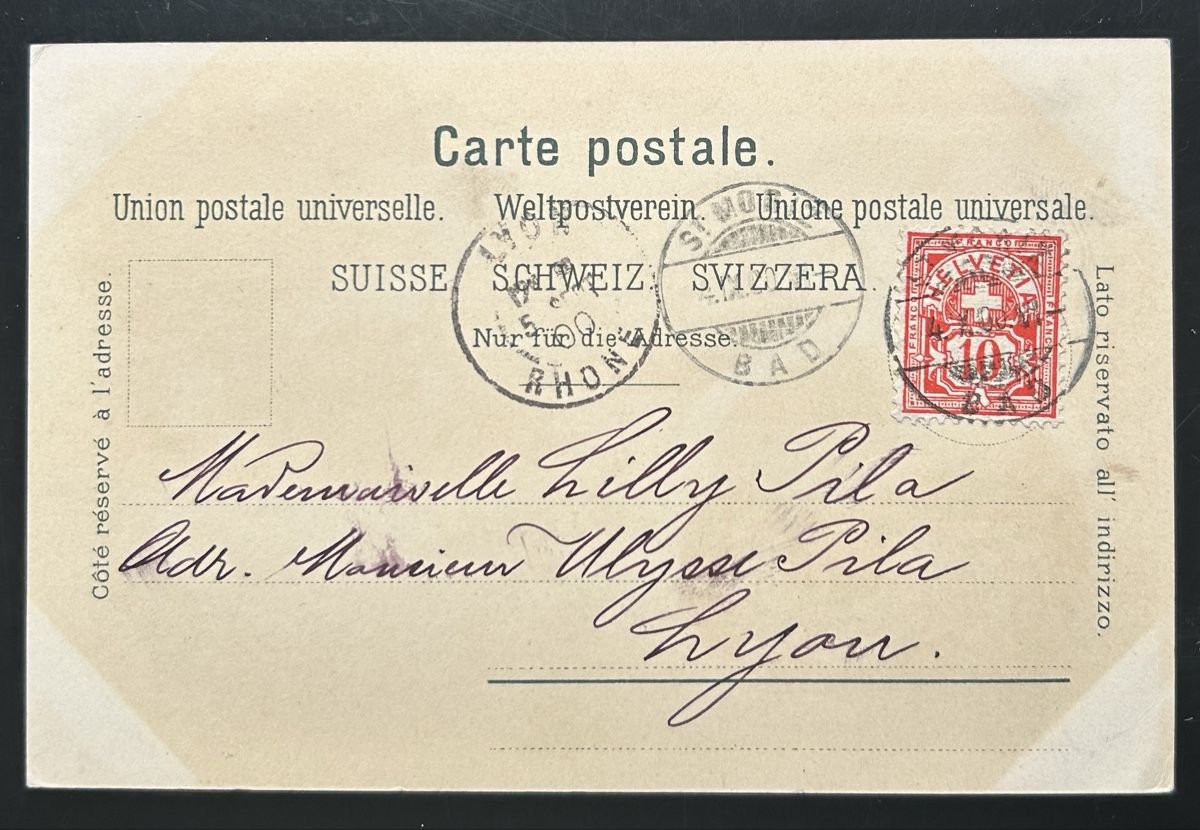 Carte postale.
Union postale universelle. Weltpostverein. Unione postale universale.
SUISSE SCHWEIZ. SVIZZERA.
Nur für die Adresse.
Côté réservé à l'adresse.
Lato riservato all' indirizzo.
LYON
5
00
RHONE
ST MOR
BAD
FRANCO
FRANCO
FRANCO
HELVETIA
10
BAD
Mademoiselle Lilly Pila
Adr. Monsieur Ulysse Pila
Lyon.